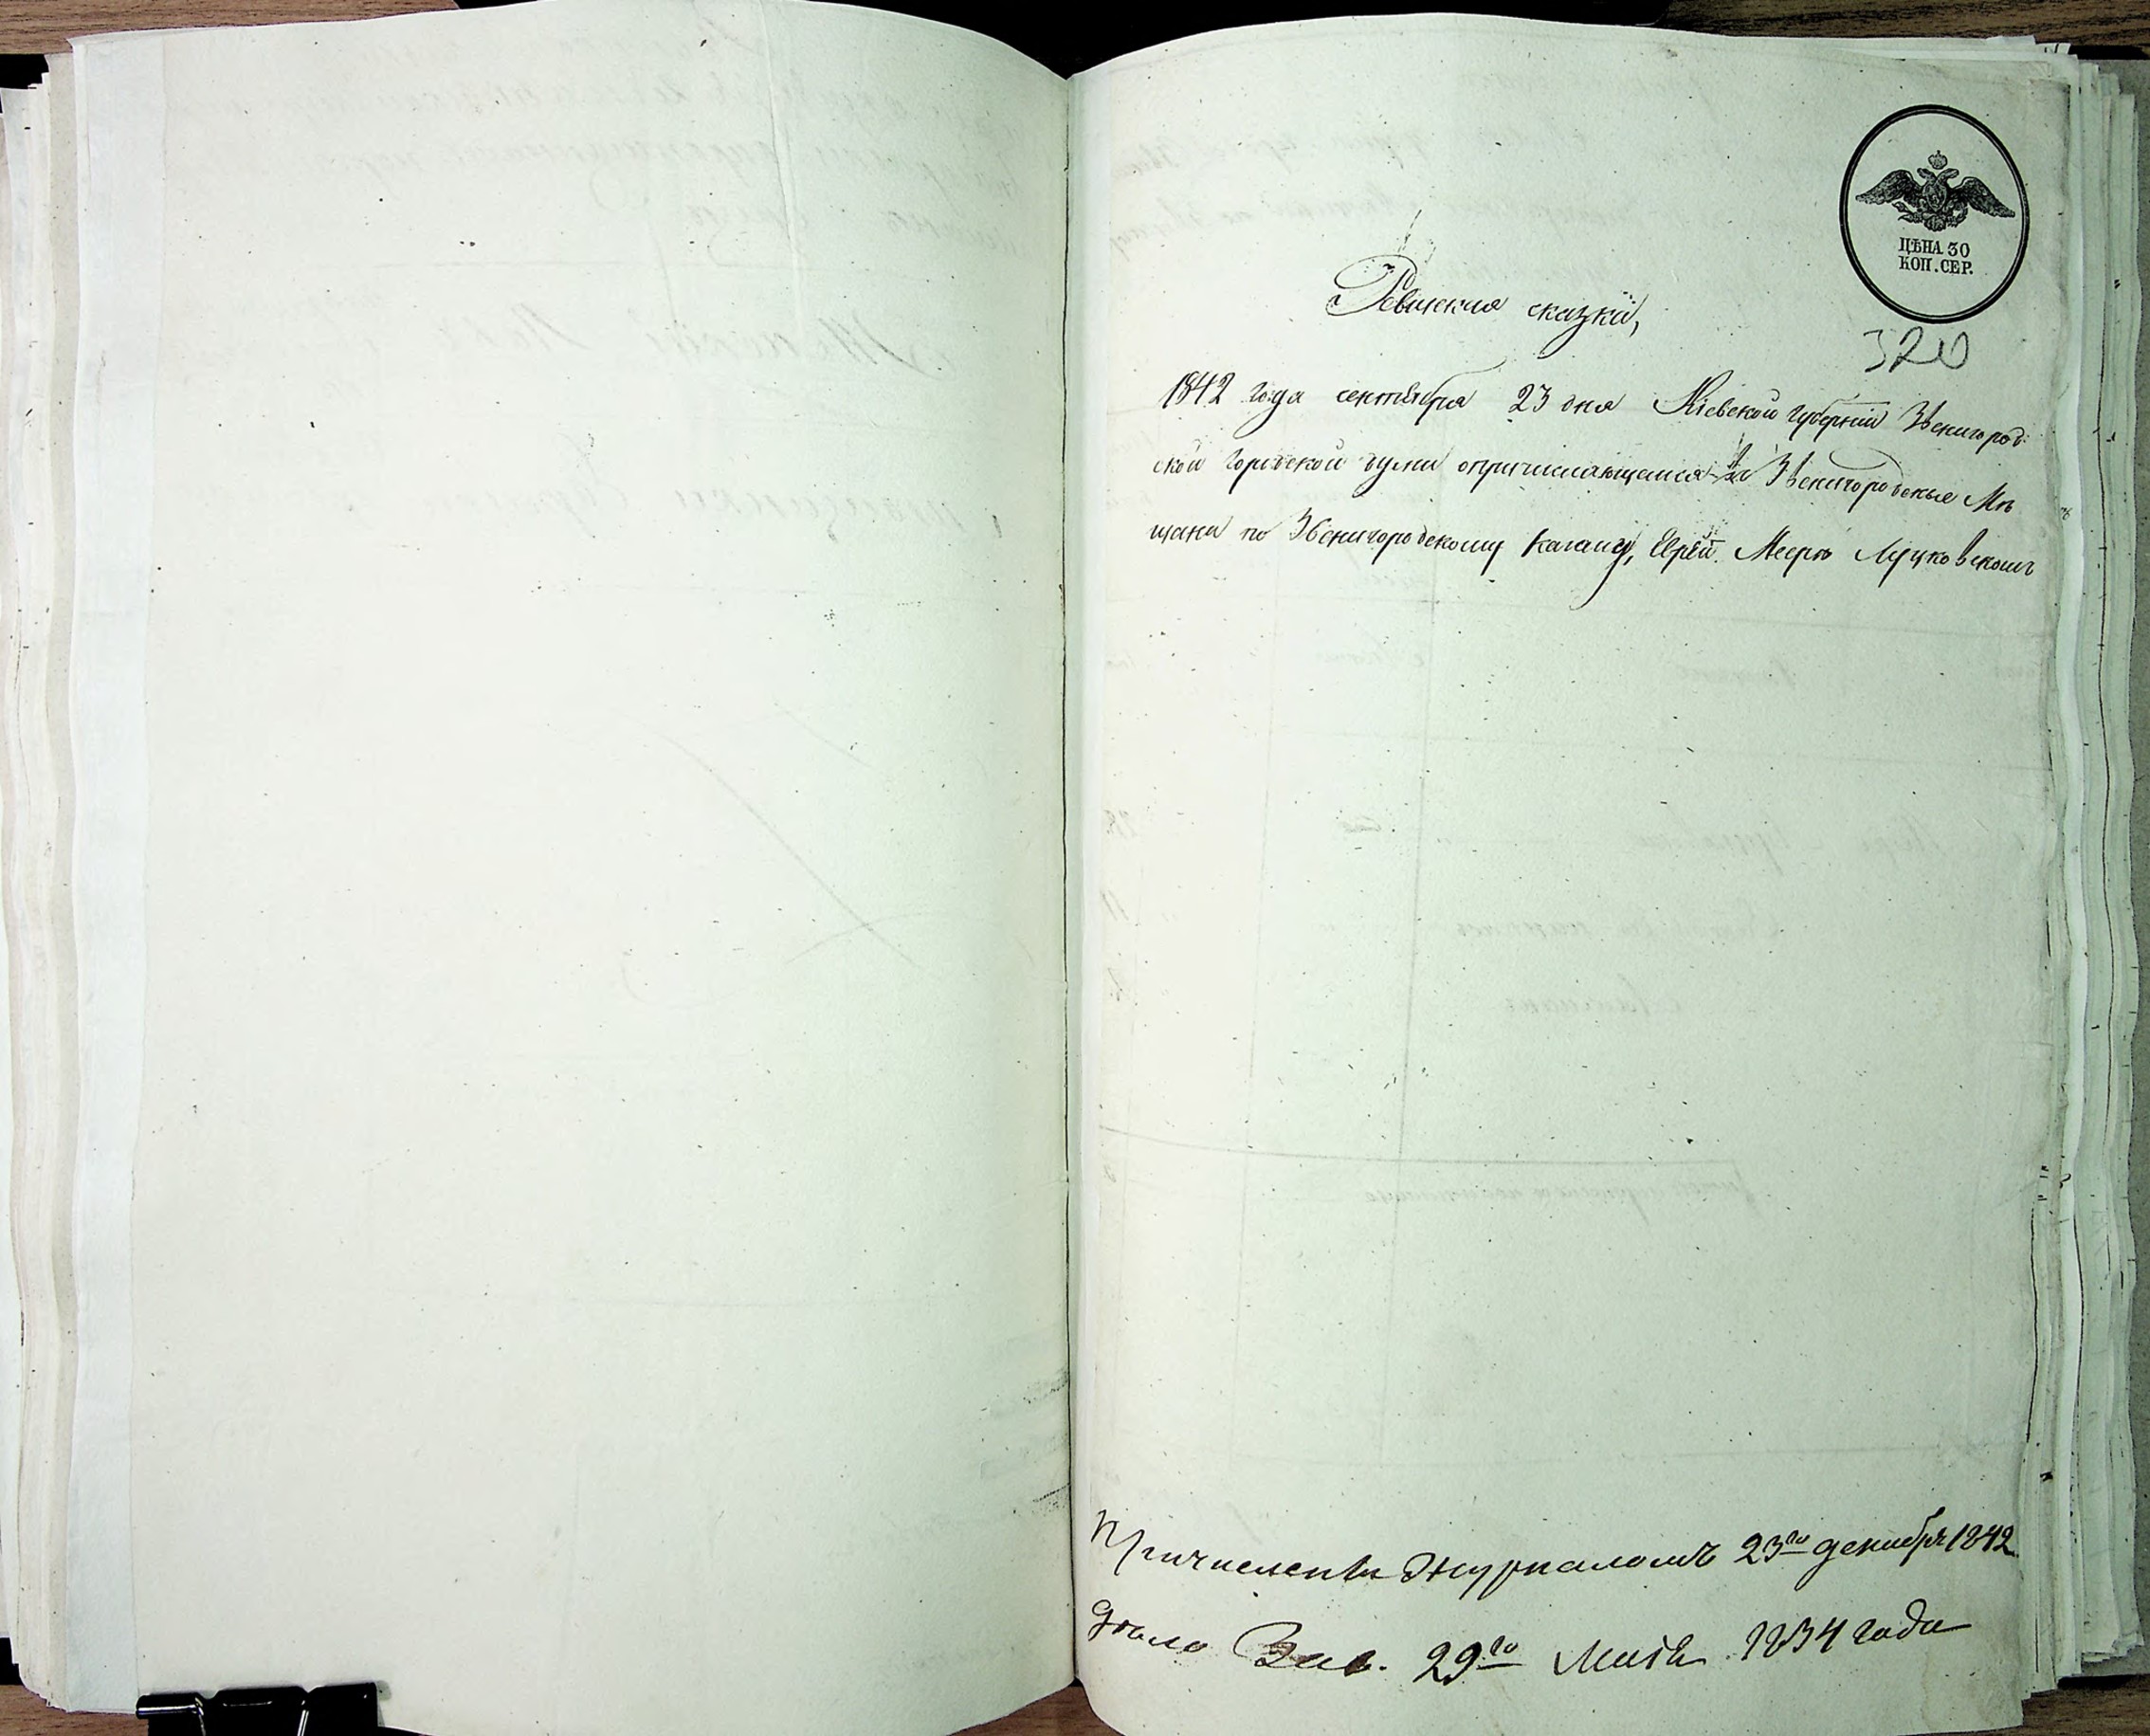 ЦѢНА 30
КОП. СЕР.
320
Ревизкия сказки,
1842 года сентября 23 дня Кіевской губерніи Звенигород
ской городской думы опричисляющемся в Звенигородскые Мѣ
щане по Звенигородскому кагалу, Еврей Меерѣ Луцковскомъ
Причисленъ журналомъ 23го декабря 1842
дѣло Зав. 29го Маія 1834 года